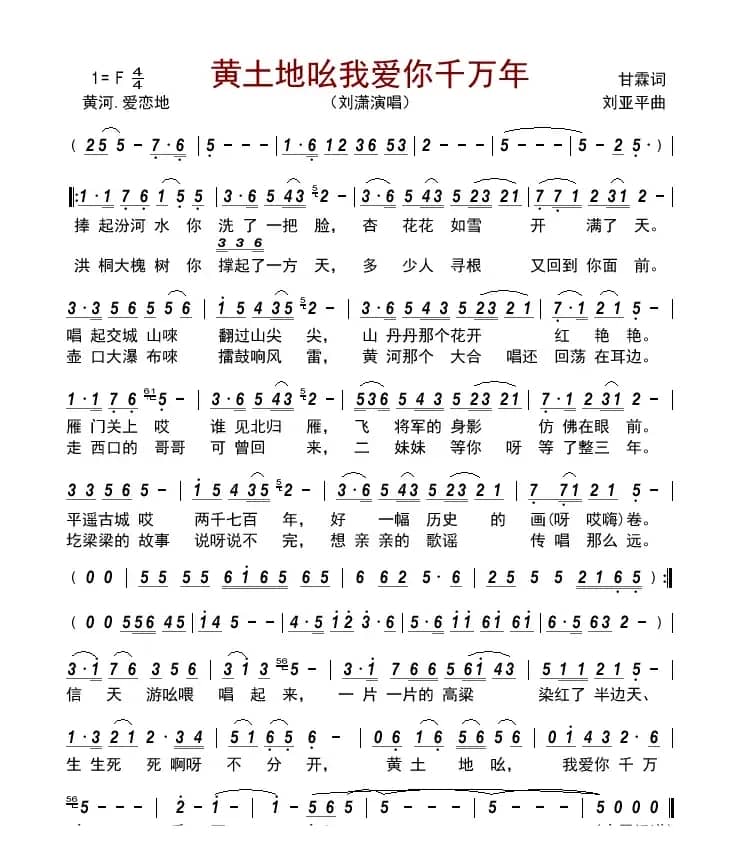 黄土地吆我爱你千万年
1= F 4/4 甘霖词
黄河.爱恋地 （刘潇演唱） 刘亚平曲
( 25 5 - 7·6 | 5 - - - | 1·6 12 36 53 | 2 - - - | 5 - - - | 5 - 2 5· )
‖: 1·1 7 6 1 5 5 | 3·6 5 43 5 2 - | 3·6 5 43 5 23 21 | 7 71 2 31 2 - |
捧 起汾河 水 你 洗 了 一把 脸， 杏 花花 如雪 开 满了 天。
3 3 6
洪 桐大槐 树 你 撑起了一方 天，多 少人 寻根 又回到 你面 前。
3·3 5 6 5 5 6 | 1 5 4 35 5 2 - | 3·3 5 4 3 5 23 2 1 | 7·1 2 1 5 - |
唱 起交城 山唻 翻过山尖 尖， 山 丹丹那个花开 红 艳艳。
壶 口大瀑 布唻 擂鼓响风 雷， 黄 河那个 大合 唱还 回荡 在耳边。
1·1 7 6 61 5 - | 3·6 5 43 5 2 - | 536 5 43 5 23 21 | 7·1 2 31 2 - |
雁 门关上 哎 谁 见北归 雁， 飞 将军的 身影 仿 佛在眼 前。
走 西口的 哥哥 可 曾回 来， 二 妹妹 等你 呀 等 了整三 年。
3 3 5 6 5 - | 1 5 4 35 5 2 - | 3·6 5 43 5 23 2 1 | 7 71 2 1 5 - |
平遥古城 哎 两千七百 年， 好 一幅 历史 的 画(呀 哎嗨)卷。
圪梁梁的 故事 说呀说不 完， 想 亲亲的 歌谣 传 唱 那么 远。
( 0 0 | 5 5 5 5 6 1 6 5 6 5 | 6 6 2 5· 6 | 2 5 5 5 2 1 6 5 ) :‖
( 0 0 556 45 | 1 4 5 - | 4·5 12 3·6 | 5·6 11 61 61 | 6·5 63 2 - )
3·1 7 6 3 5 6 | 3 1 3 56 5 - | 3·1 7 6 6 5 61 43 | 5 1 1 2 1 5 - |
信 天 游吆喂 唱 起 来， 一 片 一片的 高粱 染红了 半边天、
1·3 2 1 2·3 4 | 5 1 6 5 6 - | 0 6 1 6 5 6 5 6 | 0 1 4 3 2 2·6 |
生 生死 死 啊呀 不 分 开， 黄 土 地 吆， 我爱你 千 万
56 5 - - - | 2 - 1 - | 1 - 5 6 5 | 5 - - - | 5 - - - | 5 0 0 0 ‖